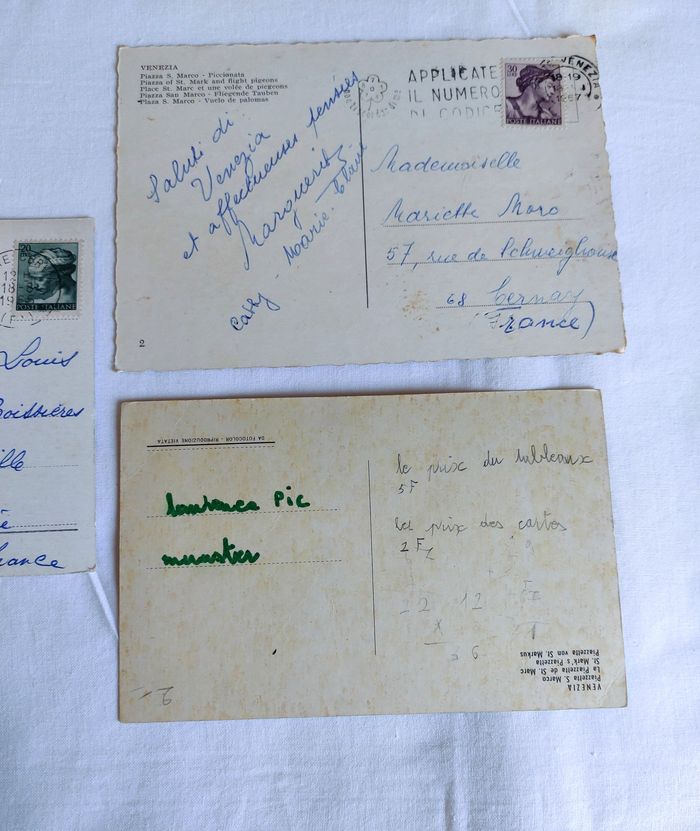 VENEZIA
Piazza S. Marco - Piccionata
Piazza of St. Mark and flight pigeons
Place St. Marc et une volée de piegrons
Piazza San Marco - Fliegende Tauben
Plaza S. Marco - Vuelo de palomas
APPLICATE
IL NUMERO
DI CODICE
30
POSTE ITALIANE
VENEZIA
18-19
Saluti di
Venezia
et affectueuses pensées
Marguerite
Marie-Claire
Cathy
Mademoiselle
Mariette Moro
57, rue de Schweighouse
68 Cernay
(France)
2
20
POSTE ITALIANE
12
18
19
Louis
Boissières
lle
France
DA FOTOCOLOR - RIPRODUZIONE VIETATA
Pic
munster
le prix du tableaux
5F
les prix des cartes
2 F
22 12
x
6
VENEZIA
Piazzetta S. Marco
La Piazzetta de St. Marc
St. Mark's Piazzetta
Piazzetta von St. Markus